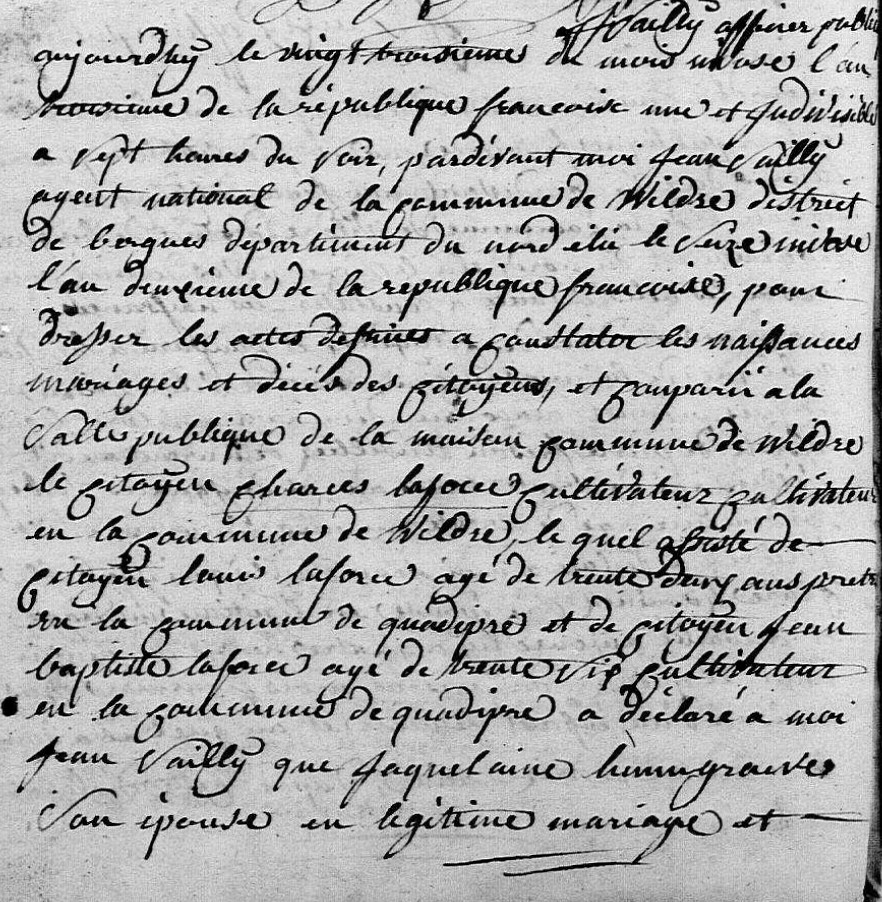 J Vailly officier public
aujourdhuy le vingt troisieme du mois nivose l'an
troisieme de la république francoise une et Indivisible
a sept heures du soir, pardévant moi Jean Vailly
agent national de la commune de Wildre district
de bergues département du nord élu le seize nivose
l'an deuxieme de la republique francoise, pour
dresser les actes destinés a constater les naissances
mariages et décés des citoyens, et comparu a la
Salle publique de la maison commune de Wildre
le citoyen charles laforce cultivateur cultivateur
en la commune de Wildre, le quel assisté de
citoyen louis laforce agé de trente deux ans pretre
en la commune de quadipre et de citoyen Jean
baptiste laforce agé de trente six cultivateur
en la commune de quadipre a déclaré a moi
Jean Vailly que Jaquelaine
Son épouse en legitime mariage et